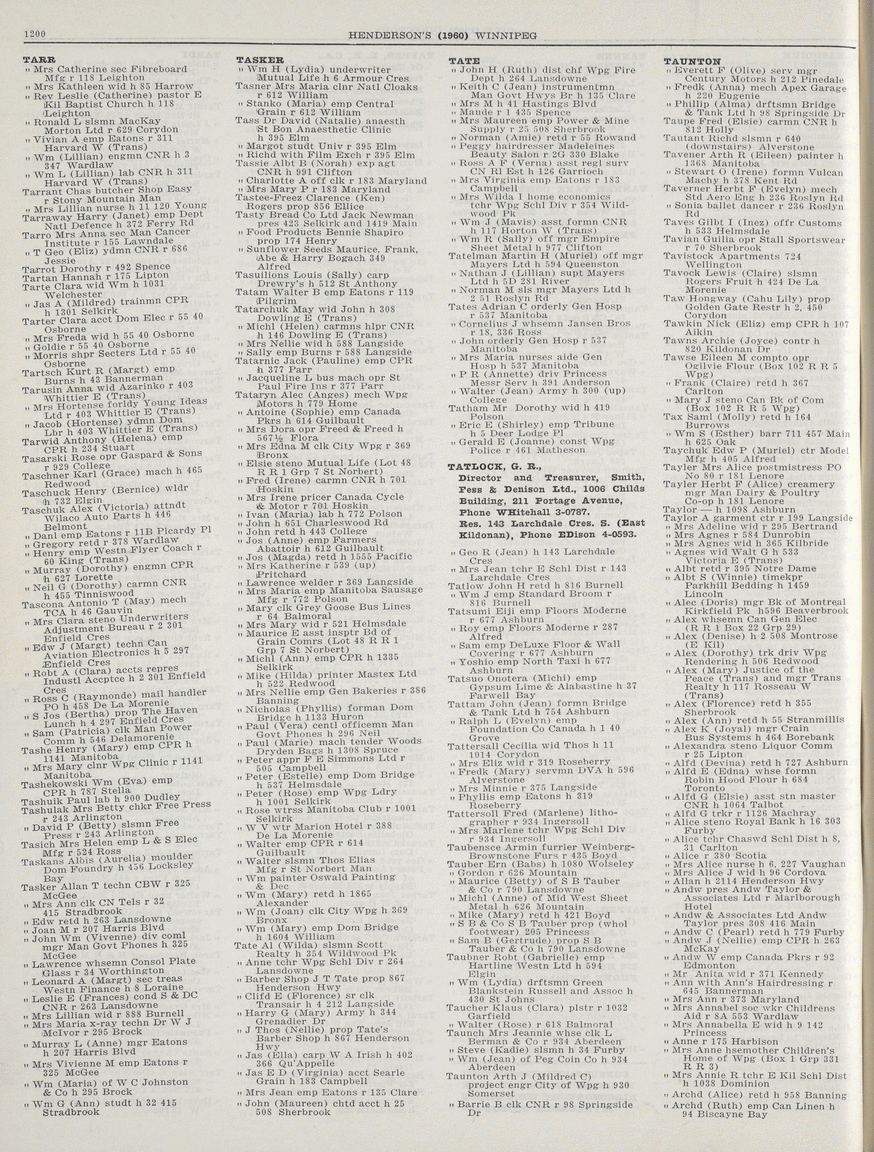 1200
HENDERSON'S (1960) WINNIPEG
TARR
" Mrs Catherine sec Fibreboard
Mfg r 118 Leighton
" Mrs Kathleen wid h 85 Harrow
" Rev Leslie (Catherine) pastor E
Kil Baptist Church h 118
Leighton
" Ronald L slsmn MacKay
Morton Ltd r 629 Corydon
" Vivian A emp Eatons r 311
Harvard W (Trans)
" Wm (Lillian) engmn CNR h 3
347 Wardlaw
" Wm L (Lillian) lab CNR h 311
Harvard W (Trans)
Tarrant Chas butcher Shop Easy
r Stony Mountain Man
" Mrs Lillian nurse h 11 120 Young
Tarraway Harry (Janet) emp Dept
Natl Defence h 372 Ferry Rd
Tarro Mrs Anna sec Man Cancer
Institute r 155 Lawndale
" T Geo (Eliz) ydmn CNR r 686
Jessie
Tarrot Dorothy r 492 Spence
Tartan Hannah r 175 Lipton
Tarte Clara wid Wm h 1031
Welchester
" Jas A (Mildred) trainmn CPR
h 1301 Selkirk
Tarter Clara acct Dom Elec r 55 40
Osborne
" Mrs Freda wid h 55 40 Osborne
" Goldie r 55 40 Osborne
" Morris shpr Secters Ltd r 55 40
Osborne
Tartsch Kurt R (Margt) emp
Burns h 43 Bannerman
Tarusin Anna wid Azarinko r 403
Whittier E (Trans)
" Mrs Hortense forldy Young Ideas
Ltd r 403 Whittier E (Trans)
" Jacob (Hortense) ydmn Dom
Lbr h 403 Whittier E (Trans)
Tarwid Anthony (Helena) emp
CPR h 234 Stuart
Tasarski Rose opr Gaspard & Sons
r 929 College
Taschner Karl (Grace) mach h 465
Redwood
Taschuck Henry (Bernice) wldr
h 732 Elgin
Taschuk Alex (Victoria) attndt
Wilaco Auto Parts h 446
Belmont
" Danl emp Eatons r 11B Picardy Pl
" Gregory retd r 378 Wardlaw
" Henry emp Westn Flyer Coach r
60 King (Trans)
" Murray (Dorothy) engmn CPR
h 627 Lorette
" Neil G (Dorothy) carmn CNR
h 455 Tinniswood
Tascona Antonio T (May) mech
TCA h 46 Gauvin
" Mrs Clara steno Underwriters
Adjustment Bureau r 2 301
Enfield Cres
" Edw J (Margt) techn Can
Aviation Electronics h 5 297
Enfield Cres
" Robt A (Clara) accts repres
Industl Accptce h 2 301 Enfield
Cres
" Ross C (Raymonde) mail handler
PO h 458 De La Morenie
" S Jos (Bertha) prop The Haven
Lunch h 4 297 Enfield Cres
" Sam (Patricia) clk Man Power
Comm h 546 Delamorenie
Tashe Henry (Mary) emp CPR h
1141 Manitoba
" Mrs Mary clnr Wpg Clinic r 1141
Manitoba
Tashekowski Wm (Eva) emp
CPR h 787 Stella
Tashuik Paul lab h 900 Dudley
Tashulak Mrs Betty chkr Free Press
r 243 Arlington
" David P (Betty) slsmn Free
Press r 243 Arlington
Tasich Mrs Helen emp L & S Elec
Mfg r 524 Ross
Taskans Albis (Aurelia) moulder
Dom Foundry h 456 Locksley
Bay
Tasker Allan T techn CBW r 325
McGee
" Mrs Ann clk CN Tels r 32
415 Stradbrook
" Edw retd h 263 Lansdowne
" Joan M r 207 Harris Blvd
" John Wm (Vivenne) div coml
mgr Man Govt Phones h 325
McGee
" Lawrence whsemn Consol Plate
Glass r 34 Worthington
" Leonard A (Margt) sec treas
Westn Finance h 8 Loraine
" Leslie E (Frances) cond S & DC
CNR r 263 Lansdowne
" Mrs Lillian wid r 888 Burnell
" Mrs Maria x-ray techn Dr W J
McIvor r 295 Brock
" Murray L (Anne) mgr Eatons
h 207 Harris Blvd
" Mrs Vivienne M emp Eatons r
325 McGee
" Wm (Maria) of W C Johnston
& Co h 295 Brock
" Wm G (Ann) studt h 32 415
Stradbrook
TASKER
" Wm H (Lydia) underwriter
Mutual Life h 6 Armour Cres
Tasner Mrs Maria clnr Natl Cloaks
r 612 William
" Stanko (Maria) emp Central
Grain r 612 William
Tass Dr David (Natalie) anaesth
St Bon Anaesthetic Clinic
h 395 Elm
" Margot studt Univ r 395 Elm
" Richd with Film Exch r 395 Elm
Tassie Albt B (Norah) exp agt
CNR h 991 Clifton
" Charlotte A off clk r 183 Maryland
" Mrs Mary P r 183 Maryland
Tastee-Freez Clarence (Ken)
Rogers prop 856 Ellice
Tasty Bread Co Ltd Jack Newman
pres 423 Selkirk and 1419 Main
" Food Products Bennie Shapiro
prop 174 Henry
" Sunflower Seeds Maurice, Frank,
Abe & Harry Bogach 349
Alfred
Tasuilious Louis (Sally) carp
Drewry's h 512 St Anthony
Tatam Walter B emp Eatons r 119
Pilgrim
Tatarchuk May wid John h 308
Dowling E (Trans)
" Michl (Helen) carmns hlpr CNR
h 146 Dowling E (Trans)
" Mrs Nellie wid h 588 Langside
" Sally emp Burns r 588 Langside
Tatarnic Jack (Pauline) emp CPR
h 377 Parr
" Jacqueline L bus mach opr St
Paul Fire Ins r 377 Parr
Tataryn Alec (Anges) mech Wpg
Motors h 779 Home
" Antoine (Sophie) emp Canada
Pkrs h 614 Guilbault
" Mrs Dora opr Freed & Freed h
567½ Flora
" Mrs Edna M clk City Wpg r 369
Bronx
" Elsie steno Mutual Life (Lot 48
R R 1 Grp 7 St Norbert)
" Fred (Irene) carmn CNR h 701
Hoskin
" Mrs Irene pricer Canada Cycle
& Motor r 701 Hoskin
" Ivan (Maria) lab h 772 Polson
" John h 651 Charleswood Rd
" John retd h 443 College
" Jos (Anne) emp Farmers
Abattoir h 612 Guilbault
" Jos (Magda) retd h 1555 Pacific
" Mrs Katherine r 539 (up)
Pritchard
" Lawrence welder r 369 Langside
" Mrs Maria emp Manitoba Sausage
Mfg r 772 Polson
" Mary clk Grey Goose Bus Lines
r 64 Balmoral
" Mrs Mary wid r 521 Helmsdale
" Maurice E asst insptr Bd of
Grain Comrs (Lot 48 R R 1
Grp 7 St Norbert)
" Michl (Ann) emp CPR h 1335
Selkirk
" Mike (Hilda) printer Mastex Ltd
h 522 Redwood
" Mrs Nellie emp Gen Bakeries r 386
Banning
" Nicholas (Phyllis) forman Dom
Bridge h 1133 Huron
" Paul (Vera) centl officemn Man
Govt Phones h 296 Neil
" Paul (Marie) mach tender Woods
Dryden Bags h 1308 Spruce
" Peter appr F E Simmons Ltd r
505 Campbell
" Peter (Estelle) emp Dom Bridge
h 537 Helmsdale
" Peter (Rose) emp Wpg Ldry
h 1001 Selkirk
" Rose wtrss Manitoba Club r 1001
Selkirk
" W V wtr Marion Hotel r 388
De La Morenie
" Walter emp CPR r 614
Guilbault
" Walter slsmn Thos Elias
Mfg r St Norbert Man
" Wm painter Oswald Painting
& Dec
" Wm (Mary) retd h 1865
Alexander
" Wm (Joan) clk City Wpg h 369
Bronx
" Wm (Mary) emp Dom Bridge
h 1604 William
Tate Al (Wilda) slsmn Scott
Realty h 354 Wildwood Pk
" Anne tchr Wpg Schl Div r 264
Lansdowne
" Barber Shop J T Tate prop 867
Henderson Hwy
" Clifd E (Florence) sr clk
Transair h 4 212 Langside
" Harry G (Mary) Army h 344
Grenadier Dr
" J Thos (Nellie) prop Tate's
Barber Shop h 867 Henderson
Hwy
" Jas (Ella) carp W A Irish h 402
366 Qu'Appelle
" Jas E D (Virginia) acct Searle
Grain h 183 Campbell
" Mrs Jean emp Eatons r 135 Clare
" John (Maureen) chtd acct h 25
508 Sherbrook
TATE
" John H (Ruth) dist chf Wpg Fire
Dept h 264 Lansdowne
" Keith C (Jean) instrumentmn
Man Govt Hwys Br h 135 Clare
" Mrs M h 41 Hastings Blvd
" Maude r 1 435 Spence
" Mrs Maureen emp Power & Mine
Supply r 25 508 Sherbrook
" Norman (Amie) retd r 55 Rowand
" Peggy hairdresser Madeleines
Beauty Salon r 2G 330 Blake
" Ross A F (Verna) asst regl surv
CN Rl Est h 126 Garrioch
" Mrs Virginia emp Eatons r 183
Campbell
" Mrs Wilda I home economics
tchr Wpg Schl Div r 354 Wild-
wood Pk
" Wm J (Mavis) asst formn CNR
h 117 Horton W (Trans)
" Wm R (Sally) off mgr Empire
Sheet Metal h 977 Clifton
Tatelman Martin H (Muriel) off mgr
Mayers Ltd h 594 Queenston
" Nathan J (Lillian) supt Mayers
Ltd h 5D 281 River
" Norman M sls mgr Mayers Ltd h
2 51 Roslyn Rd
Tates Adrian C orderly Gen Hosp
r 537 Manitoba
" Cornelius J whsemn Jansen Bros
r 18, 336 Ross
" John orderly Gen Hosp r 537
Manitoba
" Mrs Maria nurses aide Gen
Hosp h 537 Manitoba
" P R (Annette) driv Princess
Messr Serv h 391 Anderson
" Walter (Jean) Army h 300 (up)
College
Tatham Mr Dorothy wid h 419
Polson
" Eric E (Shirley) emp Tribune
h 5 Deer Lodge Pl
" Gerald E (Joanne) const Wpg
Police r 461 Matheson
TATLOCK, G. R.,
Director and Treasurer, Smith,
Fess & Denison Ltd., 1006 Childs
Building, 211 Portage Avenue,
Phone WHitehall 3-0787.
Res. 143 Larchdale Cres. S. (East
Kildonan), Phone EDison 4-0593.
" Geo R (Jean) h 143 Larchdale
Cres
" Mrs Jean tchr E Schl Dist r 143
Larchdale Cres
Tatlow John H retd h 816 Burnell
" Wm J emp Standard Broom r
816 Burnell
Tatsumi Eiji emp Floors Moderne
r 677 Ashburn
" Roy emp Floors Moderne r 287
Alfred
" Sam emp DeLuxe Floor & Wall
Covering r 677 Ashburn
" Yoshio emp North Taxi h 677
Ashburn
Tatsuo Onotera (Michi) emp
Gypsum Lime & Alabastine h 37
Farwell Bay
Tattam John (Jean) formn Bridge
& Tank Ltd h 754 Ashburn
" Ralph L (Evelyn) emp
Foundation Co Canada h 1 40
Grove
Tattersall Cecilia wid Thos h 11
1014 Corydon
" Mrs Eliz wid r 319 Roseberry
" Fredk (Mary) servmn DVA h 596
Alverstone
" Mrs Minnie r 375 Langside
" Phyllis emp Eatons h 319
Roseberry
Tattersoll Fred (Marlene) litho-
grapher r 934 Ingersoll
" Mrs Marlene tchr Wpg Schl Div
r 934 Ingersoll
Taubensee Armin furrier Weinberg-
Brownstone Furs r 435 Boyd
Tauber Ern (Babs) h 1080 Wolseley
" Gordon r 626 Mountain
" Maurice (Betty) of S B Tauber
& Co r 790 Lansdowne
" Michl (Anne) of Mid West Sheet
Metal h 626 Mountain
" Mike (Mary) retd h 421 Boyd
" S B & Co S B Tauber prop (whol
footwear) 205 Princess
" Sam B (Gertrude) prop S B
Tauber & Co h 790 Lansdowne
Taubner Robt (Gabrielle) emp
Hartline Westn Ltd h 594
Elgin
" Wm (Lydia) drftsmn Green
Blankstein Russell and Assoc h
430 St Johns
Taucher Klaus (Clara) plstr r 1032
Garfield
" Walter (Rose) r 618 Balmoral
Taunch Mrs Jeannie whse clk L
Berman & Co r 934 Aberdeen
" Steve (Kadie) slsmn h 34 Furby
" Wm (Jean) of Peg Coin Co h 934
Aberdeen
Taunton Arth J (Mildred C)
project engr City of Wpg h 930
Somerset
" Barrie B clk CNR r 98 Springside
Dr
TAUNTON
" Everett F (Olive) serv mgr
Century Motors h 212 Pinedale
" Fredk (Anna) mech Apex Garage
h 220 Eugenie
" Phillip (Alma) drftsmn Bridge
& Tank Ltd h 98 Springside Dr
Taupe Fred (Elsie) carmn CNR h
812 Holly
Tautant Richd slsmn r 640
(downstairs) Alverstone
Tavener Arth R (Eileen) painter h
1368 Manitoba
" Stewart O (Irene) formn Vulcan
Machy h 378 Kent Rd
Taverner Herbt F (Evelyn) mech
Std Aero Eng h 236 Roslyn Rd
" Sonia ballet dancer r 236 Roslyn
Rd
Taves Gilbt I (Inez) offr Customs
h 533 Helmsdale
Tavian Guilia opr Stall Sportswear
r 70 Sherbrook
Tavistock Apartments 724
Wellington
Tavock Lewis (Claire) slsmn
Rogers Fruit h 424 De La
Morenie
Taw Hongway (Cahu Lily) prop
Golden Gate Restr h 2, 450
Corydon
Tawkin Nick (Eliz) emp CPR h 107
Aikin
Tawns Archie (Joyce) contr h
820 Kildonan Dr
Tawse Eileen M compto opr
Ogilvie Flour (Box 102 R R 5
Wpg)
" Frank (Claire) retd h 367
Carlton
" Mary J steno Can Bk of Com
(Box 102 R R 5 Wpg)
Tax Saml (Molly) retd h 164
Burrows
" Wm S (Esther) barr 711 457 Main
h 625 Oak
Taychuk Edw P (Muriel) ctr Model
Mfg h 405 Alfred
Tayler Mrs Alice postmistress PO
No 80 r 181 Lenore
Tayler Herbt F (Alice) creamery
mgr Man Dairy & Poultry
Co-op h 181 Lenore
Taylor — h 1098 Ashburn
Taylor A garment ctr r 199 Langside
" Mrs Adeline wid r 295 Bertrand
" Mrs Agnes r 584 Dunrobin
" Mrs Agnes wid h 365 Kilbride
" Agnes wid Walt G h 533
Victoria E (Trans)
" Albt retd r 395 Notre Dame
" Albt S (Winnie) timekpr
Parkhill Bedding h 1459
Lincoln
" Alec (Doris) mgr Bk of Montreal
Kirkfield Pk h596 Beaverbrook
" Alex whsemn Can Gen Elec
(R R 1 Box 22 Grp 29)
" Alex (Denise) h 2 508 Montrose
(E Kil)
" Alex (Dorothy) trk driv Wpg
Rendering h 506 Redwood
" Alex (Mary) Justice of the
Peace (Trans) and mgr Trans
Realty h 117 Rosseau W
(Trans)
" Alex (Florence) retd h 355
Sherbrook
" Alex (Ann) retd h 55 Stranmillis
" Alex K (Joyal) mgr Crain
Bus Systems h 464 Borebank
" Alexandra steno Liquor Comm
r 25 Lipton
" Alfd (Devina) retd h 727 Ashburn
" Alfd E (Edna) whse formn
Robin Hood Flour h 684
Toronto
" Alfd G (Elsie) asst stn master
CNR h 1064 Talbot
" Alfd G trkr r 1126 Machray
" Alice steno Royal Bank h 16 303
Furby
" Alice tchr Chaswd Schl Dist h 8,
31 Carlton
" Alice r 380 Scotia
" Mrs Alice nurse h 6, 227 Vaughan
" Mrs Alice J wid h 96 Cordova
" Allan h 2114 Henderson Hwy
" Andw pres Andw Taylor &
Associates Ltd r Marlborough
Hotel
" Andw & Associates Ltd Andw
Taylor pres 308 416 Main
" Andw C (Pearl) retd h 779 Furby
" Andw J (Nellie) emp CPR h 263
McKay
" Andw W emp Canada Pkrs r 92
Edmonton
" Mr Anita wid r 371 Kennedy
" Ann with Ann's Hairdressing r
645 Bannerman
" Mrs Ann r 373 Maryland
" Mrs Annabel soc wkr Childrens
Aid r 8A 553 Wardlaw
" Mrs Annabella E wid h 9 142
Princess
" Anne r 175 Harbison
" Mrs Anne hsemother Children's
Home of Wpg (Box 1 Grp 331
R R 3)
" Mrs Annie R tchr E Kil Schl Dist
h 1038 Dominion
" Archd (Alice) retd h 958 Banning
" Archd (Ruth) emp Can Linen h
94 Biscayne Bay